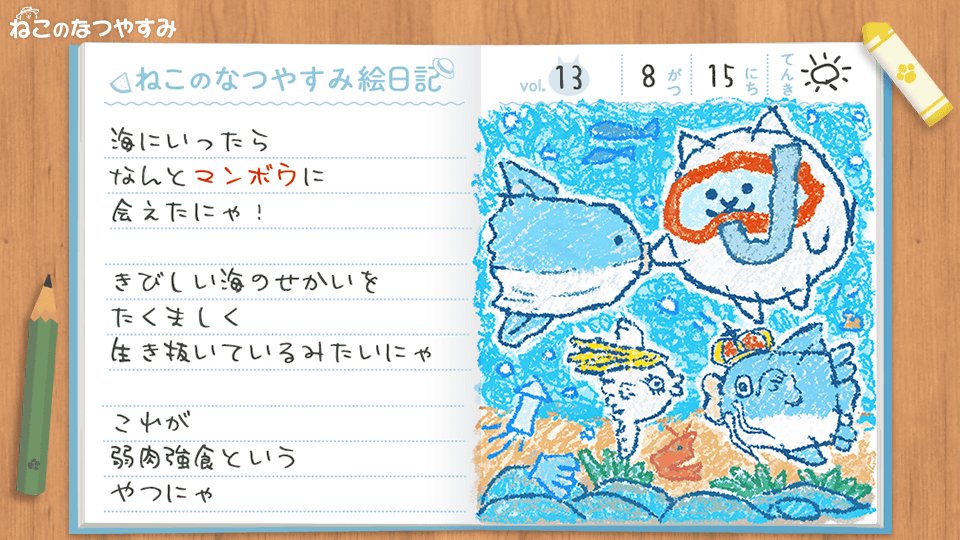 ねこのなつやすみ
ねこのなつやすみ絵日記
vol. 13 8 がつ 15 にち てんき
海にいったら
なんとマンボウに
会えたにゃ！
きびしい海のせかいを
たくましく
生き抜いているみたいにゃ
これが
弱肉強食という
やつにゃ